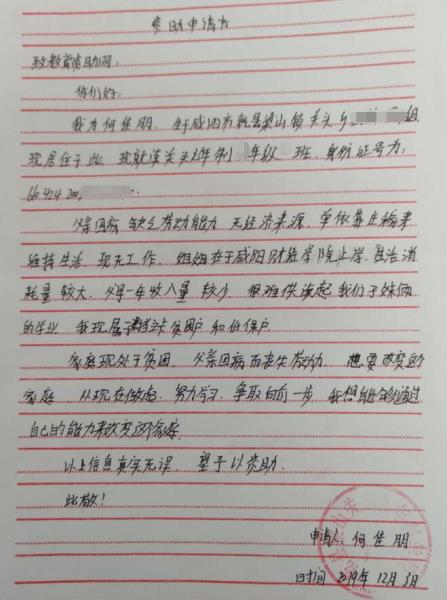 资助申请书
致教育资助网:
你们好:
我为何佳朋, 生于咸阳市乾县梁山镇关头 组
现居住于此, 现就读关头 年级 班, 身份证号为:
父亲因病缺乏劳动能力 无经济来源, 单依靠庄稼来
维持生活, 现无工作, 姐姐在于咸阳财经学院上学, 生活消
耗量较大, 父母一年收入量较少, 很难供读起我们子妹俩
的学业, 我现属于 贫困户和低保户
家庭现处于贫困, 父亲因病而丧失劳动力 想要改变这个
家庭 从现在做起, 努力学习, 争取向前一步, 我想能够通过
自己的能力来改变这个家庭.
以上信息真实无误, 望予以资助.
此敬!
申请人: 何佳朋
时间 2019年12月3日